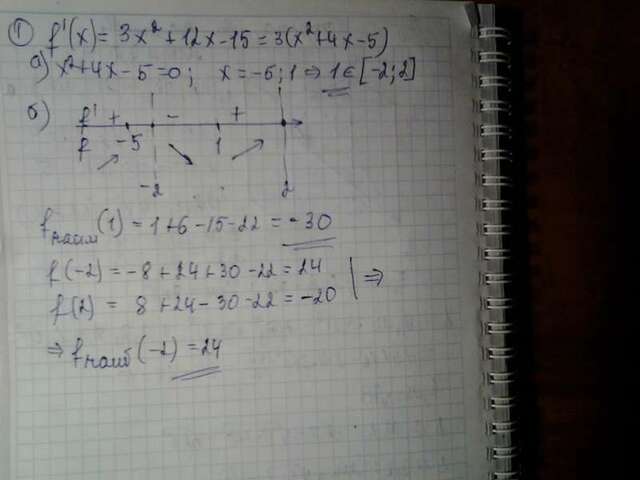 ① f'(x) = 3x² + 12x - 15 = 3(x² + 4x - 5)
а) x² + 4x - 5 = 0; x = -5; 1 ⇒ 1 ∈ [-2; 2]
б) f' + - +
f -5 1
↗ ↘ ↗
-2 2
fнаим(1) = 1 + 6 - 15 - 22 = -30
f(-2) = -8 + 24 + 30 - 22 = 24 | ⇒
f(2) = 8 + 24 - 30 - 22 = -20
⇒ fнаиб(-2) = 24